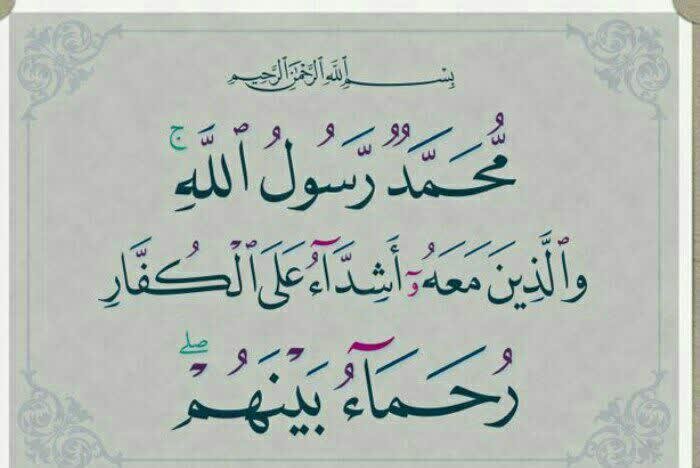 بِسْمِ ٱللَّهِ ٱلرَّحْمَٰنِ ٱلرَّحِيمِ
مُّحَمَّدٌ رَّسُولُ ٱللَّهِ ۚ
وَٱلَّذِينَ مَعَهُۥٓ أَشِدَّآءُ عَلَى ٱلْكُفَّارِ
رُحَمَآءُ بَيْنَهُمْ ۖ